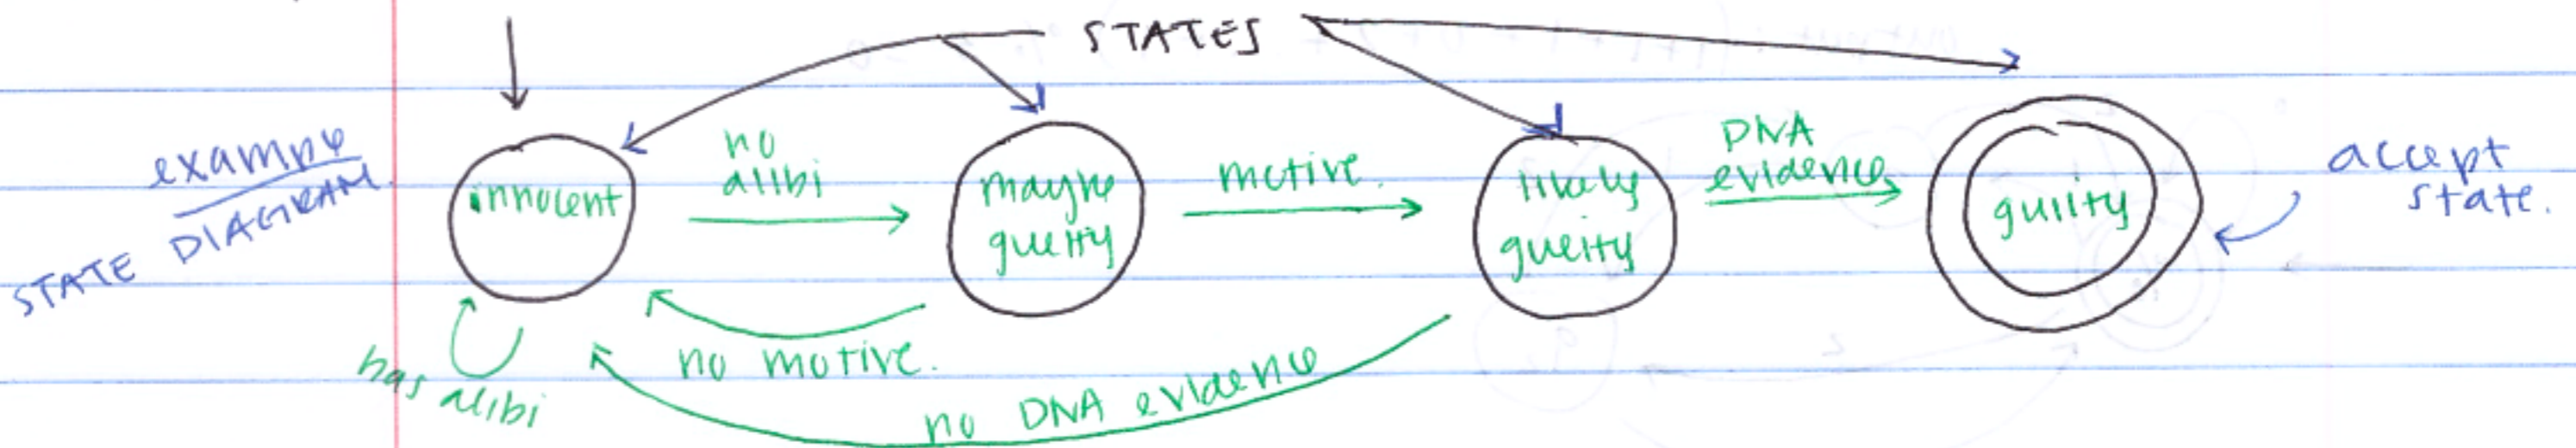 STATES
example
STATE DIAGRAM.
innocent
no
alibi
maybe
guilty
motive.
likely
guilty
DNA
evidence
guilty
accept
state.
has alibi
no motive.
no DNA evidence